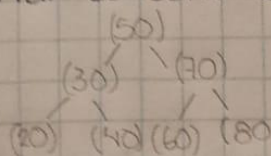 (50)
(30) (70)
(20) (40) (60) (80